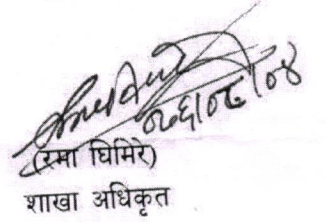 ०७६।०८।०४
(रमा घिमिरे)
शाखा अधिकृत